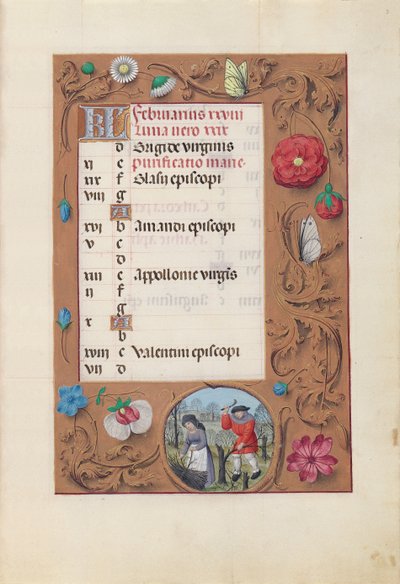 KL Februarius xxviij
Luna vero xxix
d Brigide virginis
xi e Purificatio marie
xix f Blasij episcopi
viij g
A
xvi b Amandi episcopi
v c
d
xiij e Appollonie virgis
ij f
g
x A
b
xviij c Valentini episcopi
vij d